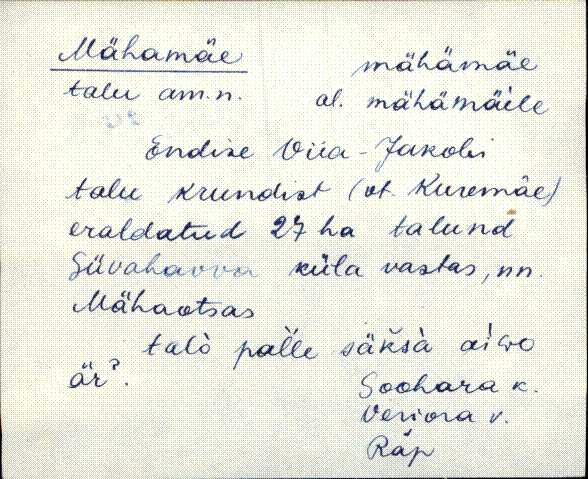 Mähamäe mähämäe
talu am.n. al. mähämäele
Endise Viia-Jakobi
talu krundist (vt. Kuremäe)
eraldatud 27 ha talund
Süvahavva küla vastas, nn.
Mähaotsas
talò palle säksà aiwo
är?.
Soohara k.
Veriora v.
Räp